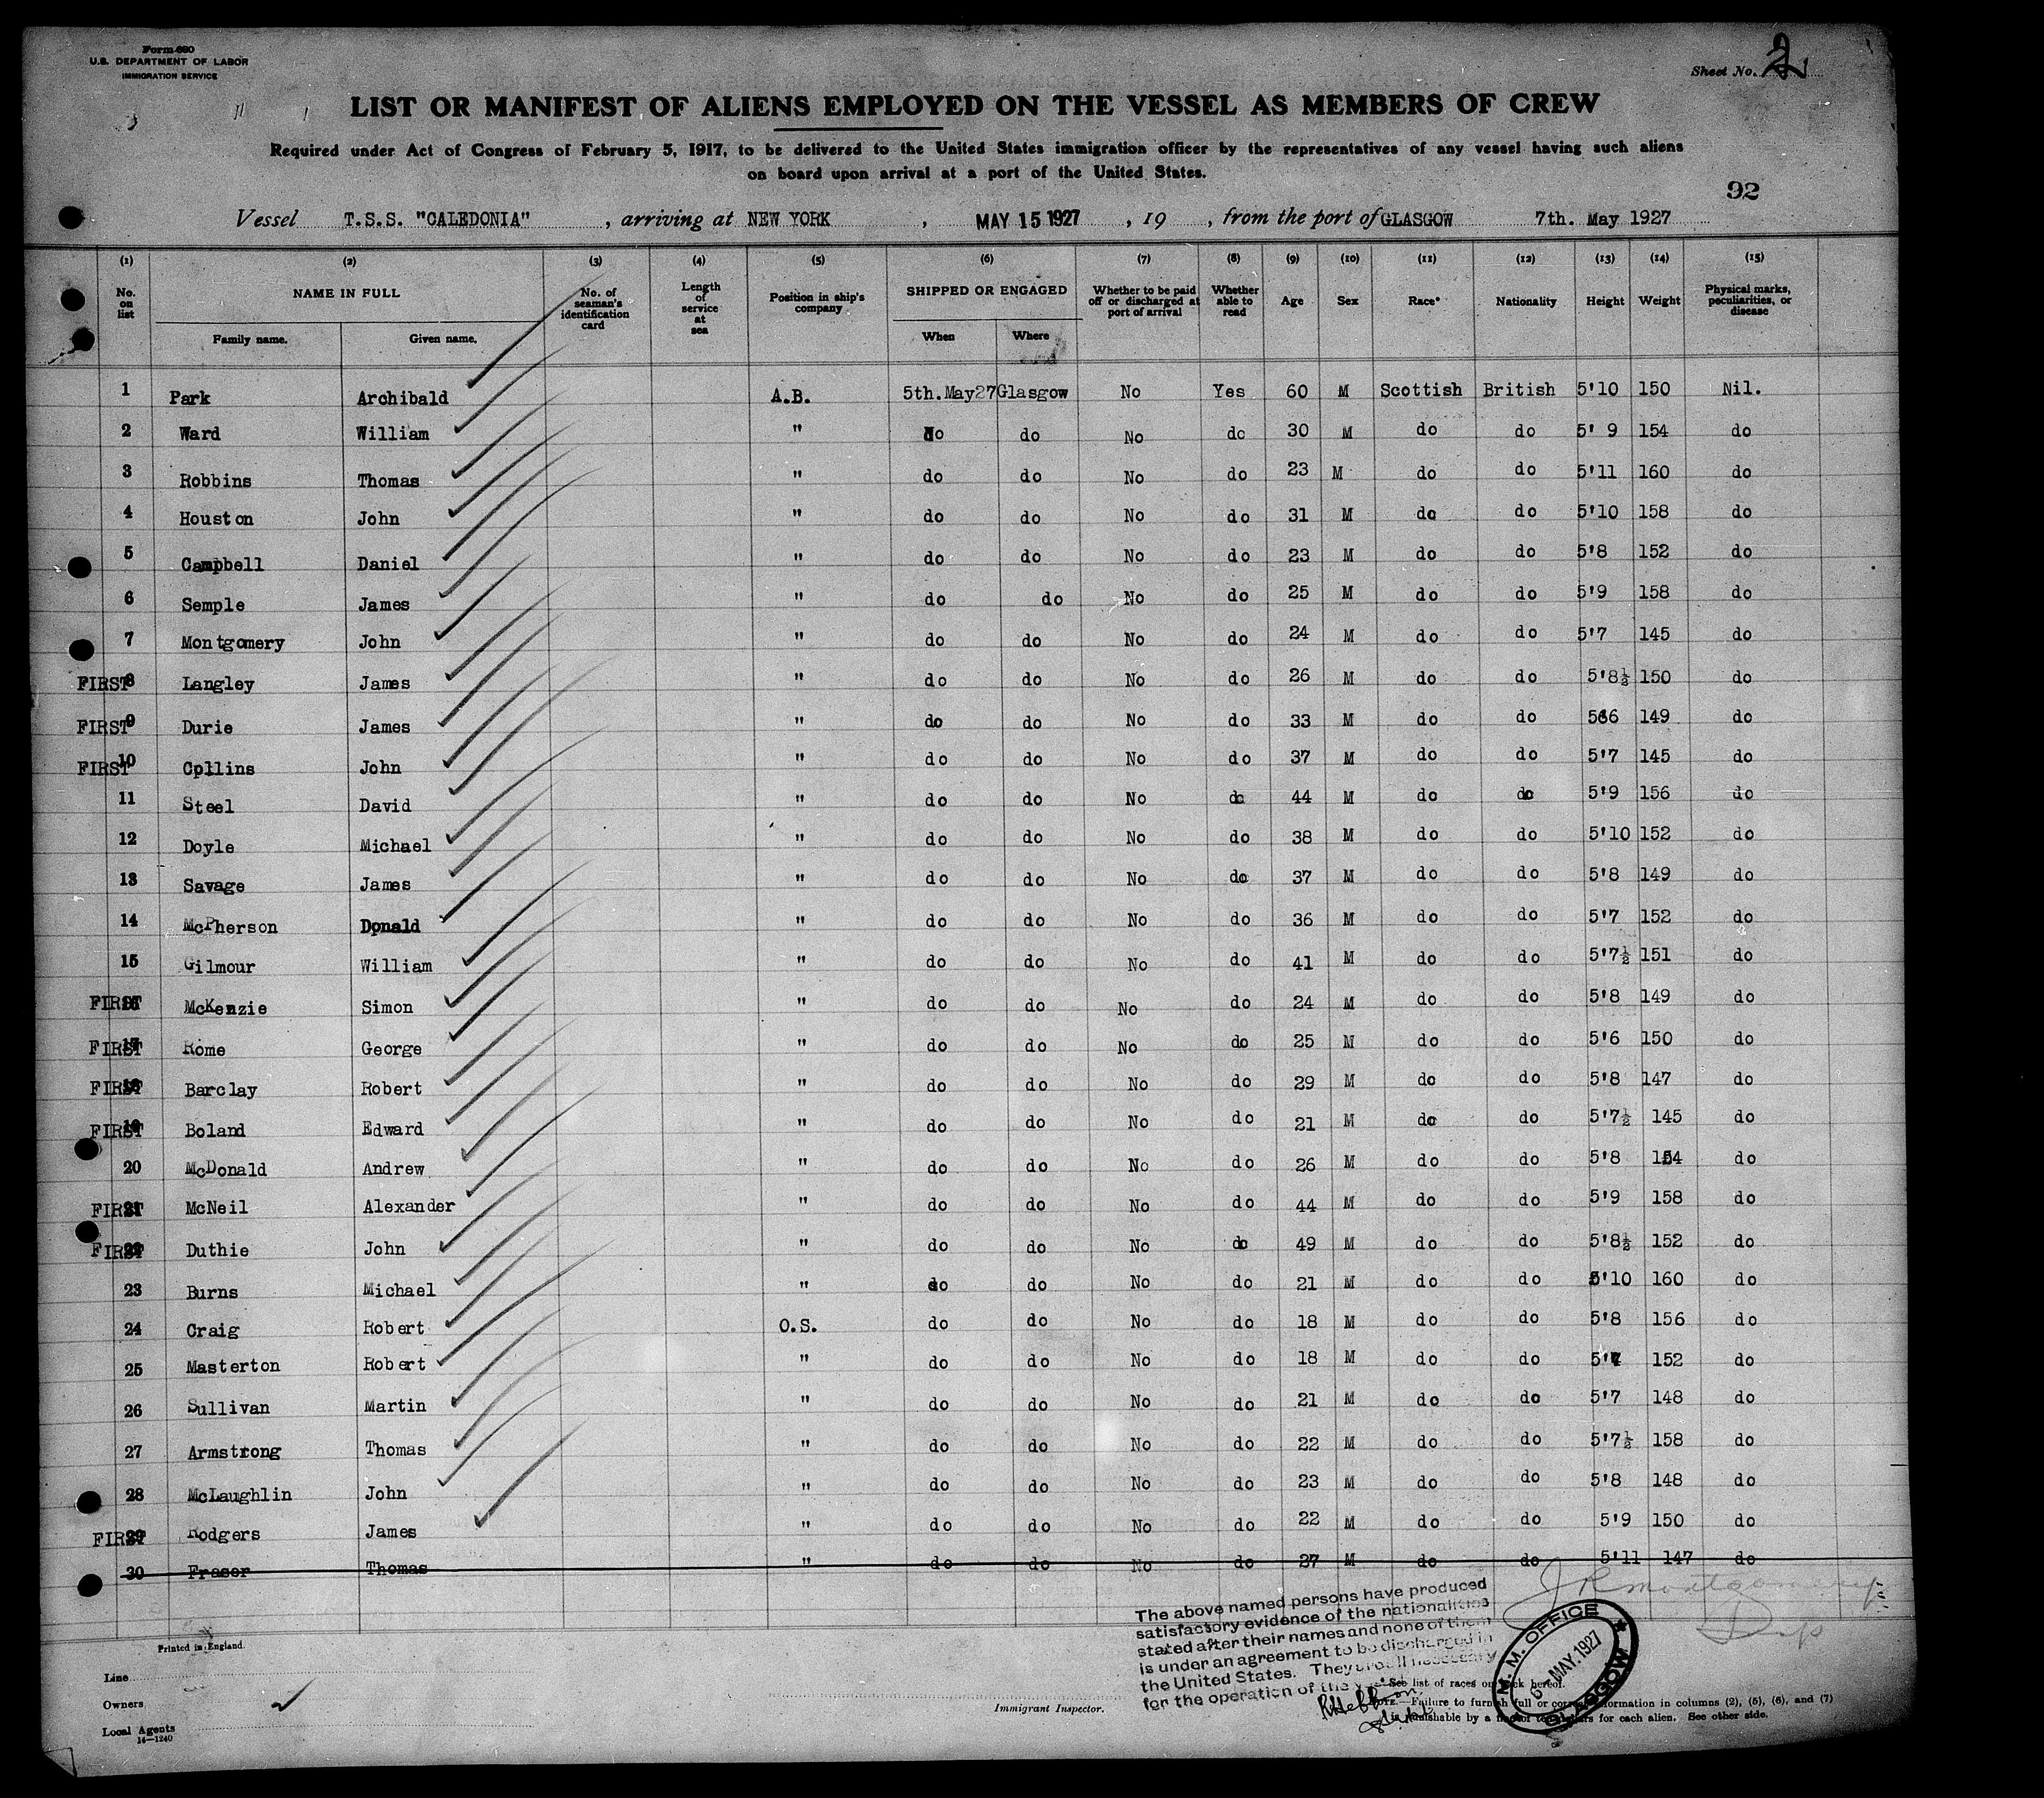 Form 680
U.S. DEPARTMENT OF LABOR
IMMIGRATION SERVICE
Sheet No. 2
LIST OR MANIFEST OF ALIENS EMPLOYED ON THE VESSEL AS MEMBERS OF CREW
Required under Act of Congress of February 5, 1917, to be delivered to the United States immigration officer by the representatives of any vessel having such aliens
on board upon arrival at a port of the United States.
92
Vessel T.S.S. "CALEDONIA", arriving at NEW YORK, MAY 15 1927, 19, from the port of GLASGOW 7th. May 1927
(1) (2) (3) (4) (5) (6) (7) (8) (9) (10) (11) (12) (13) (14) (15)
No. on list NAME IN FULL Family name. Given name. No. of seaman's identification card Length of service at sea Position in ship's company SHIPPED OR ENGAGED When Where Whether to be paid off or discharged at port of arrival Whether able to read Age Sex Race* Nationality Height Weight Physical marks, peculiarities, or disease
1 Park Archibald A.B. 5th.May27 Glasgow No Yes 60 M Scottish British 5'10 150 Nil.
2 Ward William " do do No do 30 M do do 5' 9 154 do
3 Robbins Thomas " do do No do 23 M do do 5'11 160 do
4 Houston John " do do No do 31 M do do 5'10 158 do
5 Campbell Daniel " do do No do 23 M do do 5'8 152 do
6 Semple James " do do No do 25 M do do 5'9 158 do
7 Montgomery John " do do No do 24 M do do 5'7 145 do
FIRST 8 Langley James " do do No do 26 M do do 5'8½ 150 do
FIRST 9 Durie James " do do No do 33 M do do 5'6 149 do
FIRST 10 Cpllins John " do do No do 37 M do do 5'7 145 do
11 Steel David " do do No do 44 M do do 5'9 156 do
12 Doyle Michael " do do No do 38 M do do 5'10 152 do
13 Savage James " do do No do 37 M do do 5'8 149 do
14 McPherson Donald " do do No do 36 M do do 5'7 152 do
15 Gilmour William " do do No do 41 M do do 5'7½ 151 do
FIRST 16 McKenzie Simon " do do No do 24 M do do 5'8 149 do
FIRST 17 Rome George " do do No do 25 M do do 5'6 150 do
FIRST 18 Barclay Robert " do do No do 29 M do do 5'8 147 do
FIRST 19 Boland Edward " do do No do 21 M do do 5'7½ 145 do
20 McDonald Andrew " do do No do 26 M do do 5'8 154 do
FIRST 21 McNeil Alexander " do do No do 44 M do do 5'9 158 do
FIRST 22 Duthie John " do do No do 49 M do do 5'8½ 152 do
23 Burns Michael " do do No do 21 M do do 5'10 160 do
24 Craig Robert O.S. do do No do 18 M do do 5'8 156 do
25 Masterton Robert " do do No do 18 M do do 152 do
26 Sullivan Martin " do do No do 21 M do do 5'7 148 do
27 Armstrong Thomas " do do No do 22 M do do 5'7½ 158 do
28 McLaughlin John " do do No do 23 M do do 5'8 148 do
FIRST 29 Rodgers James " do do No do 22 M do do 5'9 150 do
30 Fraser Thomas " do do No do 27 M do do 5'11 147 do
J R Montgomery
The above named persons have produced
satisfactory evidence of the nationalities
stated after their names and none of them
is under an agreement to be discharged in
the United States. They are all necessary
for the operation of the
M. M. OFFICE
6 MAY. 1927
GLASGOW
Printed in England.
Line
Owners
Local Agents
14—1240
Immigrant Inspector.
See list of races on back hereof.
NOTE.—Failure to furnish full or correct information in columns (2), (5), (6), and (7)
is punishable by a fine of ten dollars for each alien. See other side.